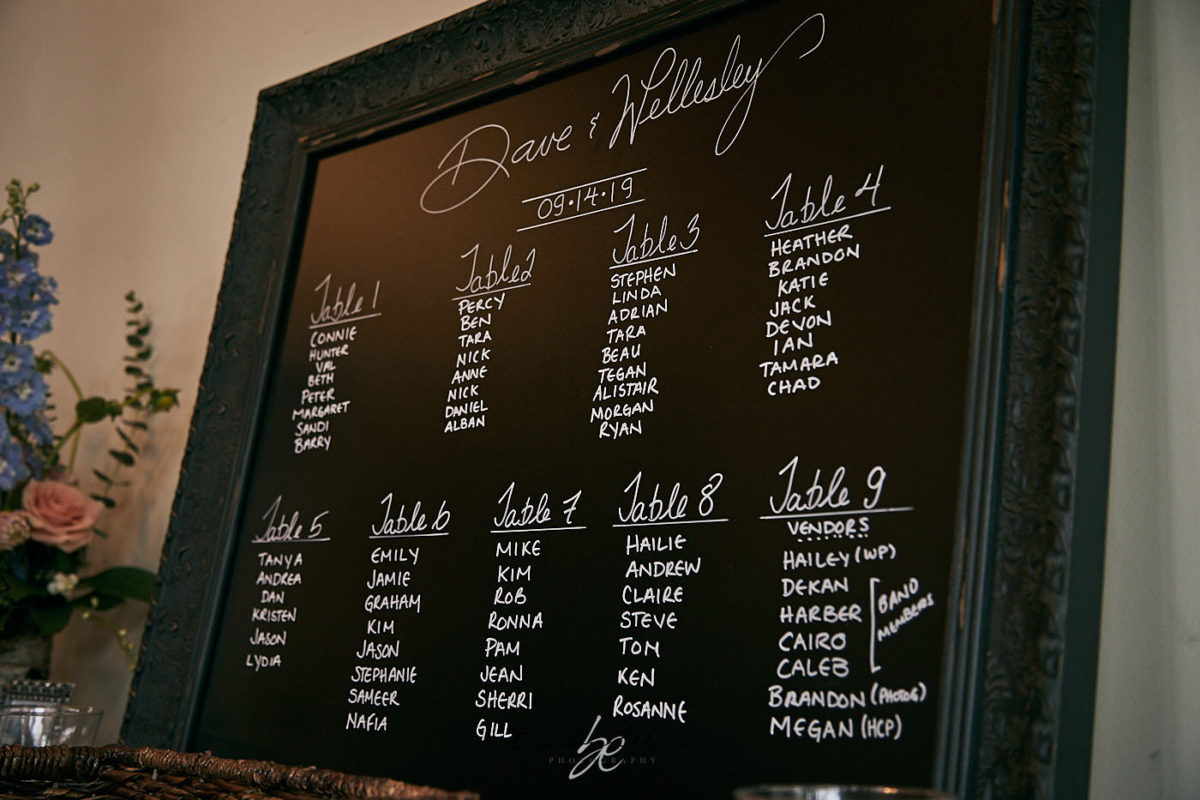 Dave & Wellesley
09·14·19
Table 1
CONNIE
HUNTER
VAL
BETH
PETER
MARGARET
SANDI
BARRY
Table 2
PERCY
BEN
TARA
NICK
ANNE
NICK
DANIEL
ALBAN
Table 3
STEPHEN
LINDA
ADRIAN
TARA
BEAU
TEGAN
ALISTAIR
MORGAN
RYAN
Table 4
HEATHER
BRANDON
KATIE
JACK
DEVON
IAN
TAMARA
CHAD
Table 5
TANYA
ANDREA
DAN
KRISTEN
JASON
LYDIA
Table 6
EMILY
JAMIE
GRAHAM
KIM
JASON
STEPHANIE
SAMEER
NAFIA
Table 7
MIKE
KIM
ROB
RONNA
PAM
JEAN
SHERRI
GILL
Table 8
HAILIE
ANDREW
CLAIRE
STEVE
TON
KEN
ROSANNE
Table 9
VENDORS
HAILEY (WP)
DEKAN
HARBER
CAIRO
CALEB
BAND
MEMBERS
BRANDON (PHOTOG)
MEGAN (HCP)
PHOTOGRAPHY